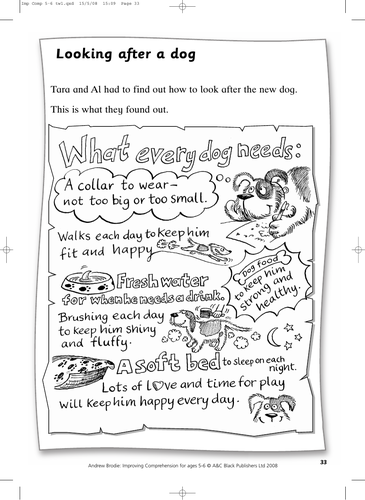 Imp Comp 5-6 1w1.qxd 15/5/08 15:09 Page 33
Looking after a dog
Tara and Al had to find out how to look after the new dog.
This is what they found out.
What every dog needs:
A collar to wear–
not too big or too small.
Walks each day to keep him
fit and happy
Dog food
to keep him
strong and
healthy.
Fresh water
for when he needs a drink.
Brushing each day
to keep him shiny
and fluffy.
A soft bed to sleep on each
night.
Lots of love and time for play
will keep him happy every day.
33
Andrew Brodie: Improving Comprehension for ages 5-6 © A&C Black Publishers Ltd 2008